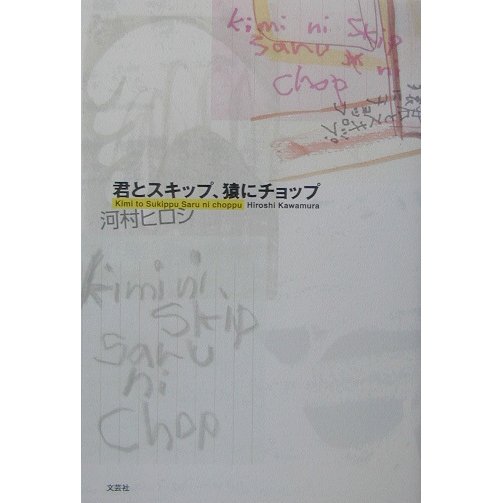 kimi ni Skip
saru * ni
Chop
君とスキップ、猿にチョップ
Kimi to Sukippu Saru ni choppu Hiroshi Kawamura
河村ヒロシ
kimi ni,
Skip
saru
ni
Chop
文芸社